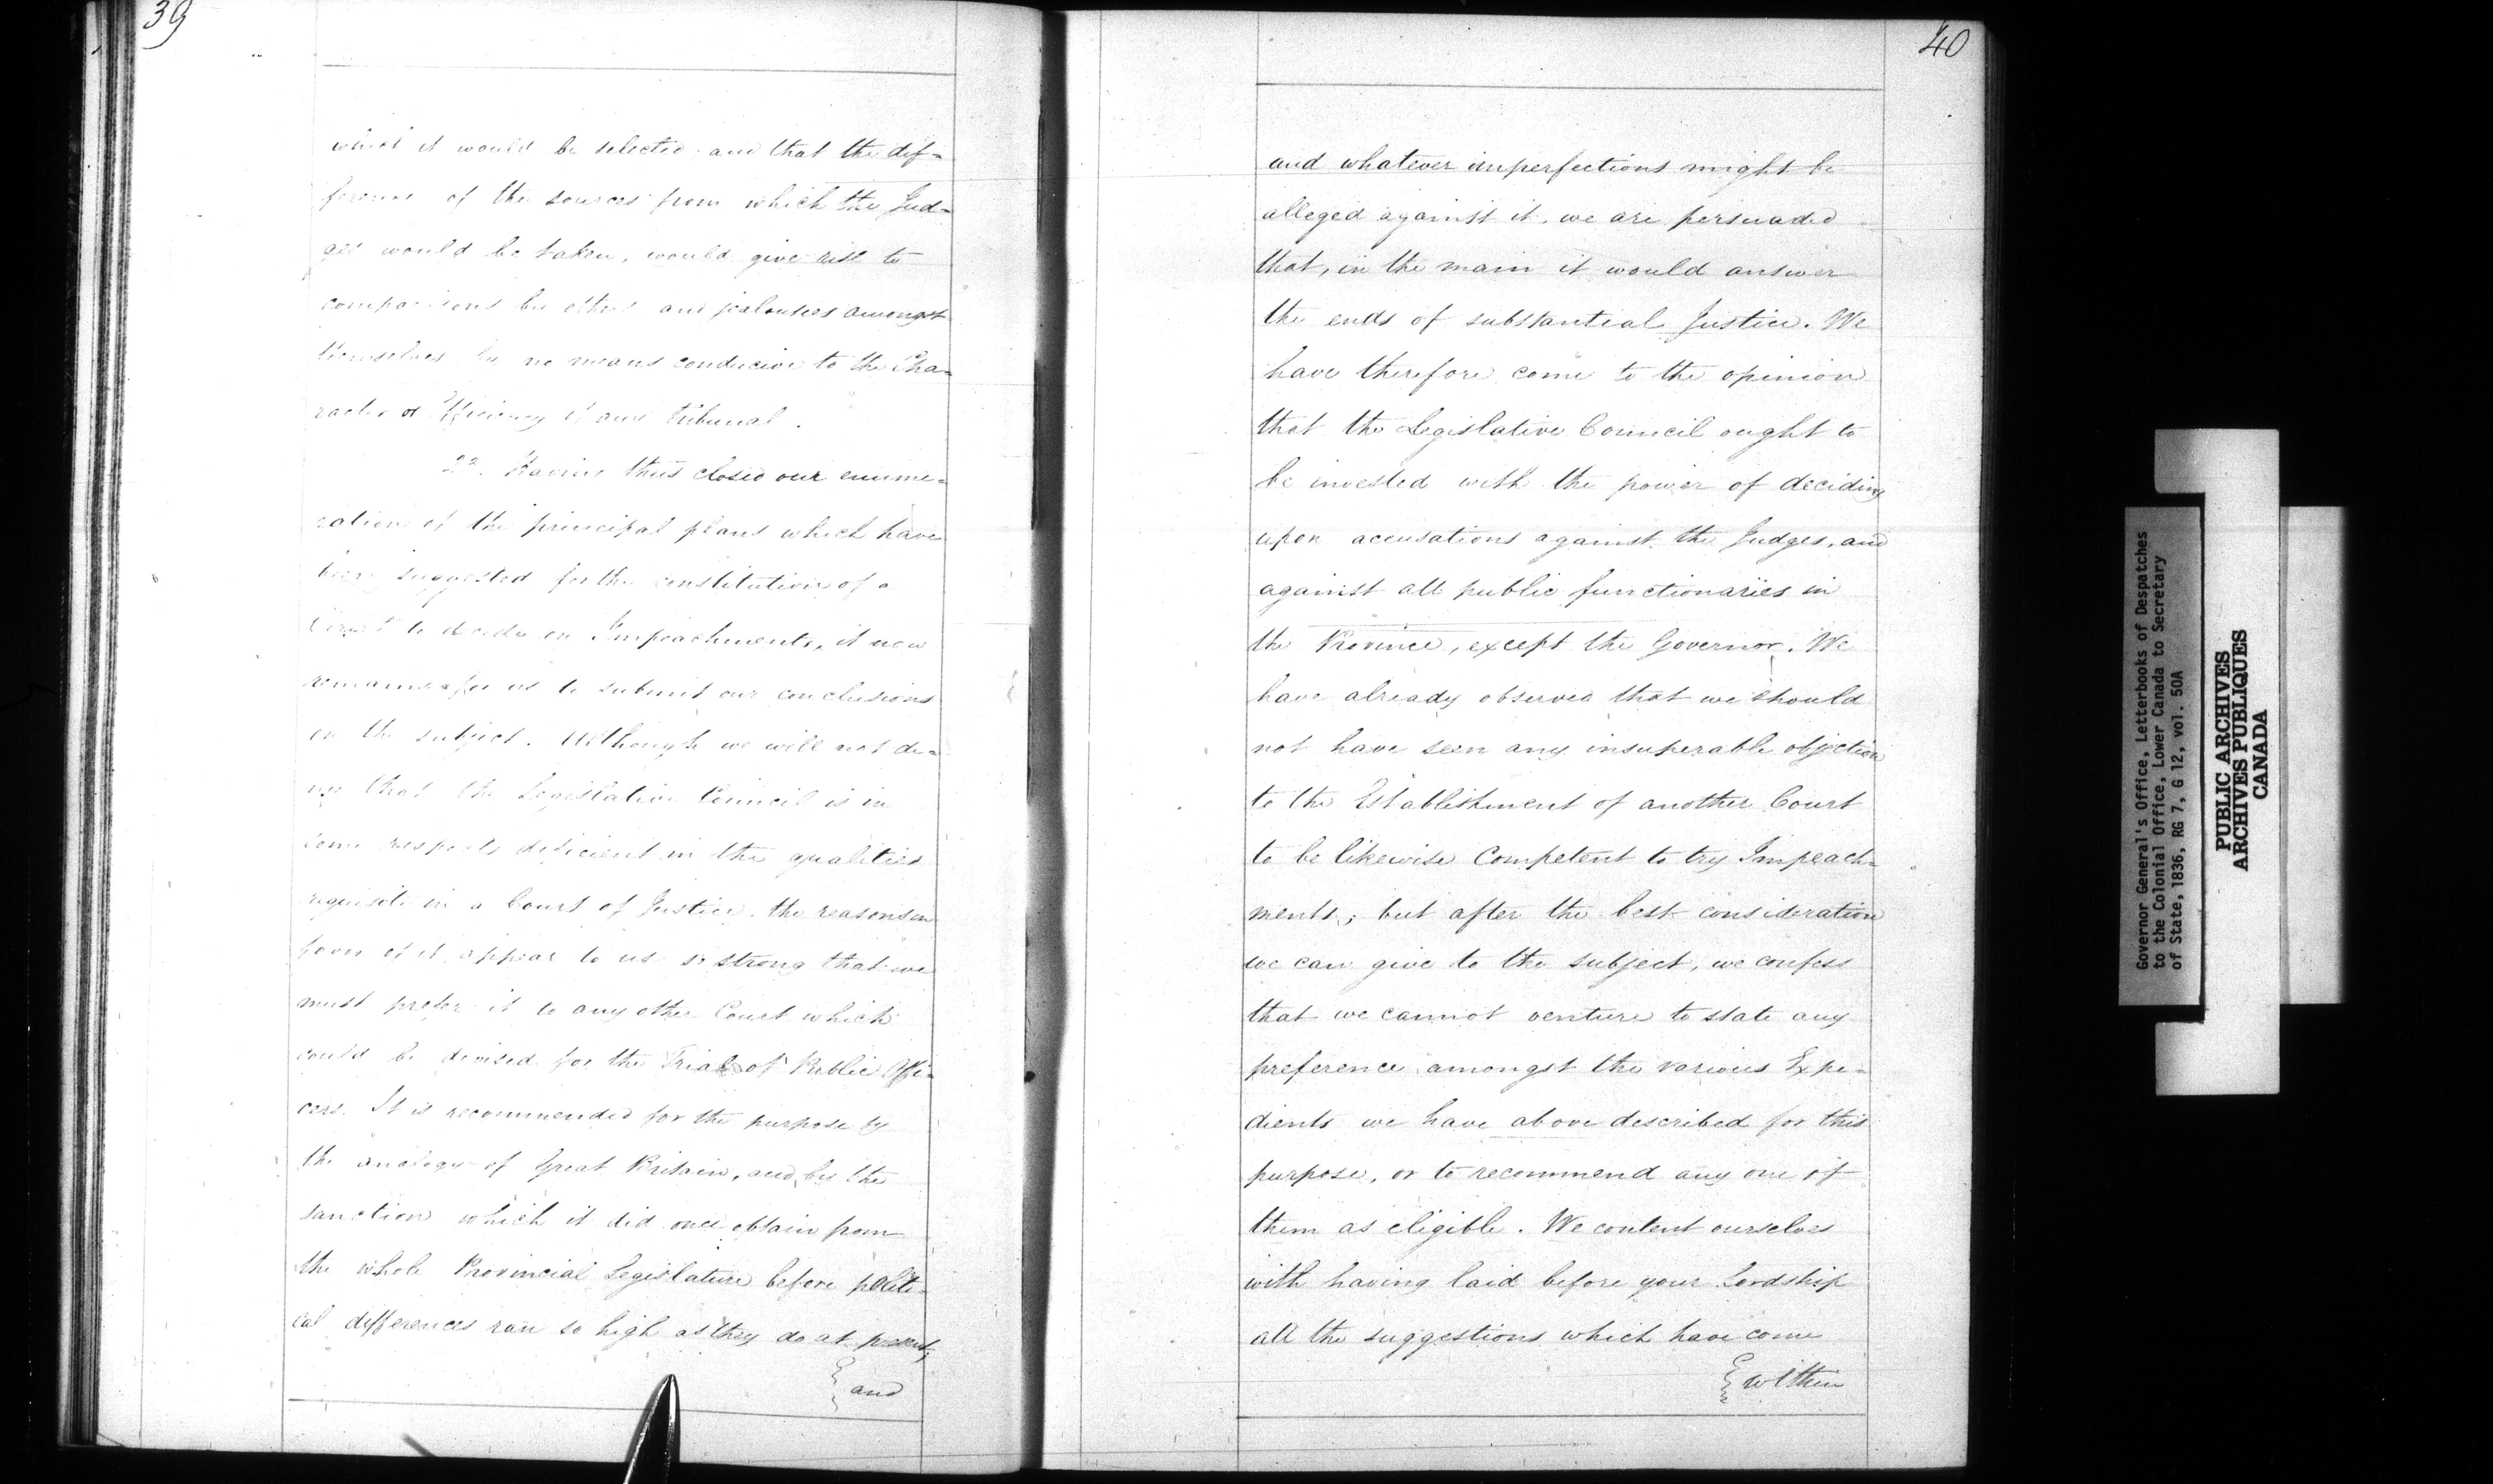 39
which it would be selected and that the dif=
ference of the sources from which the Jud=
ges would be taken, would give rise to
comparisons by others and jealousies amongst
themselves by no means conducive to the Cha=
racter or Efficiency of any Tribunal.
22. Having thus closed our enume=
ration of the principal plans which have
been suggested for the constitution of a
Court to decide on Impeachments, it now
remains for us to submit our conclusions
on the subject. Although we will not de=
ny that the Legislative Council is in
some respects deficient in the qualities
requisite in a Court of Justice, the reasons in
favor of it appear to us so strong that we
must prefer it to any other Court which
could be devised for the Trial of Public Offi=
cers. It is recommended for the purpose by
the analogy of Great Britain, and by the
sanction which it did once obtain from
the whole Provincial Legislature before politi=
cal differences ran so high as they do at present;
and
40
and whatever imperfections might be
alleged against it, we are persuaded
that, in the main it would answer
the ends of substantial Justice. We
have therefore come to the opinion
that the Legislative Council ought to
be invested with the power of deciding
upon accusations against the Judges, and
against all public functionaries in
the Province, except the Governor. We
have already observed that we should
not have seen any insuperable objection
to the Establishment of another Court
to be likewise Competent to try Impeach=
ments; but after the best consideration
we can give to the subject, we confess
that we cannot venture to state any
preference amongst the various Expe=
dients we have above described for this
purpose, or to recommend any one of
them as eligible. We content ourselves
with having laid before your Lordship
all the suggestions which have come
within
Governor General's Office, Letterbooks of Despatches
to the Colonial Office, Lower Canada to Secretary
of State, 1836, RG 7, G 12, vol. 50A
PUBLIC ARCHIVES
ARCHIVES PUBLIQUES
CANADA